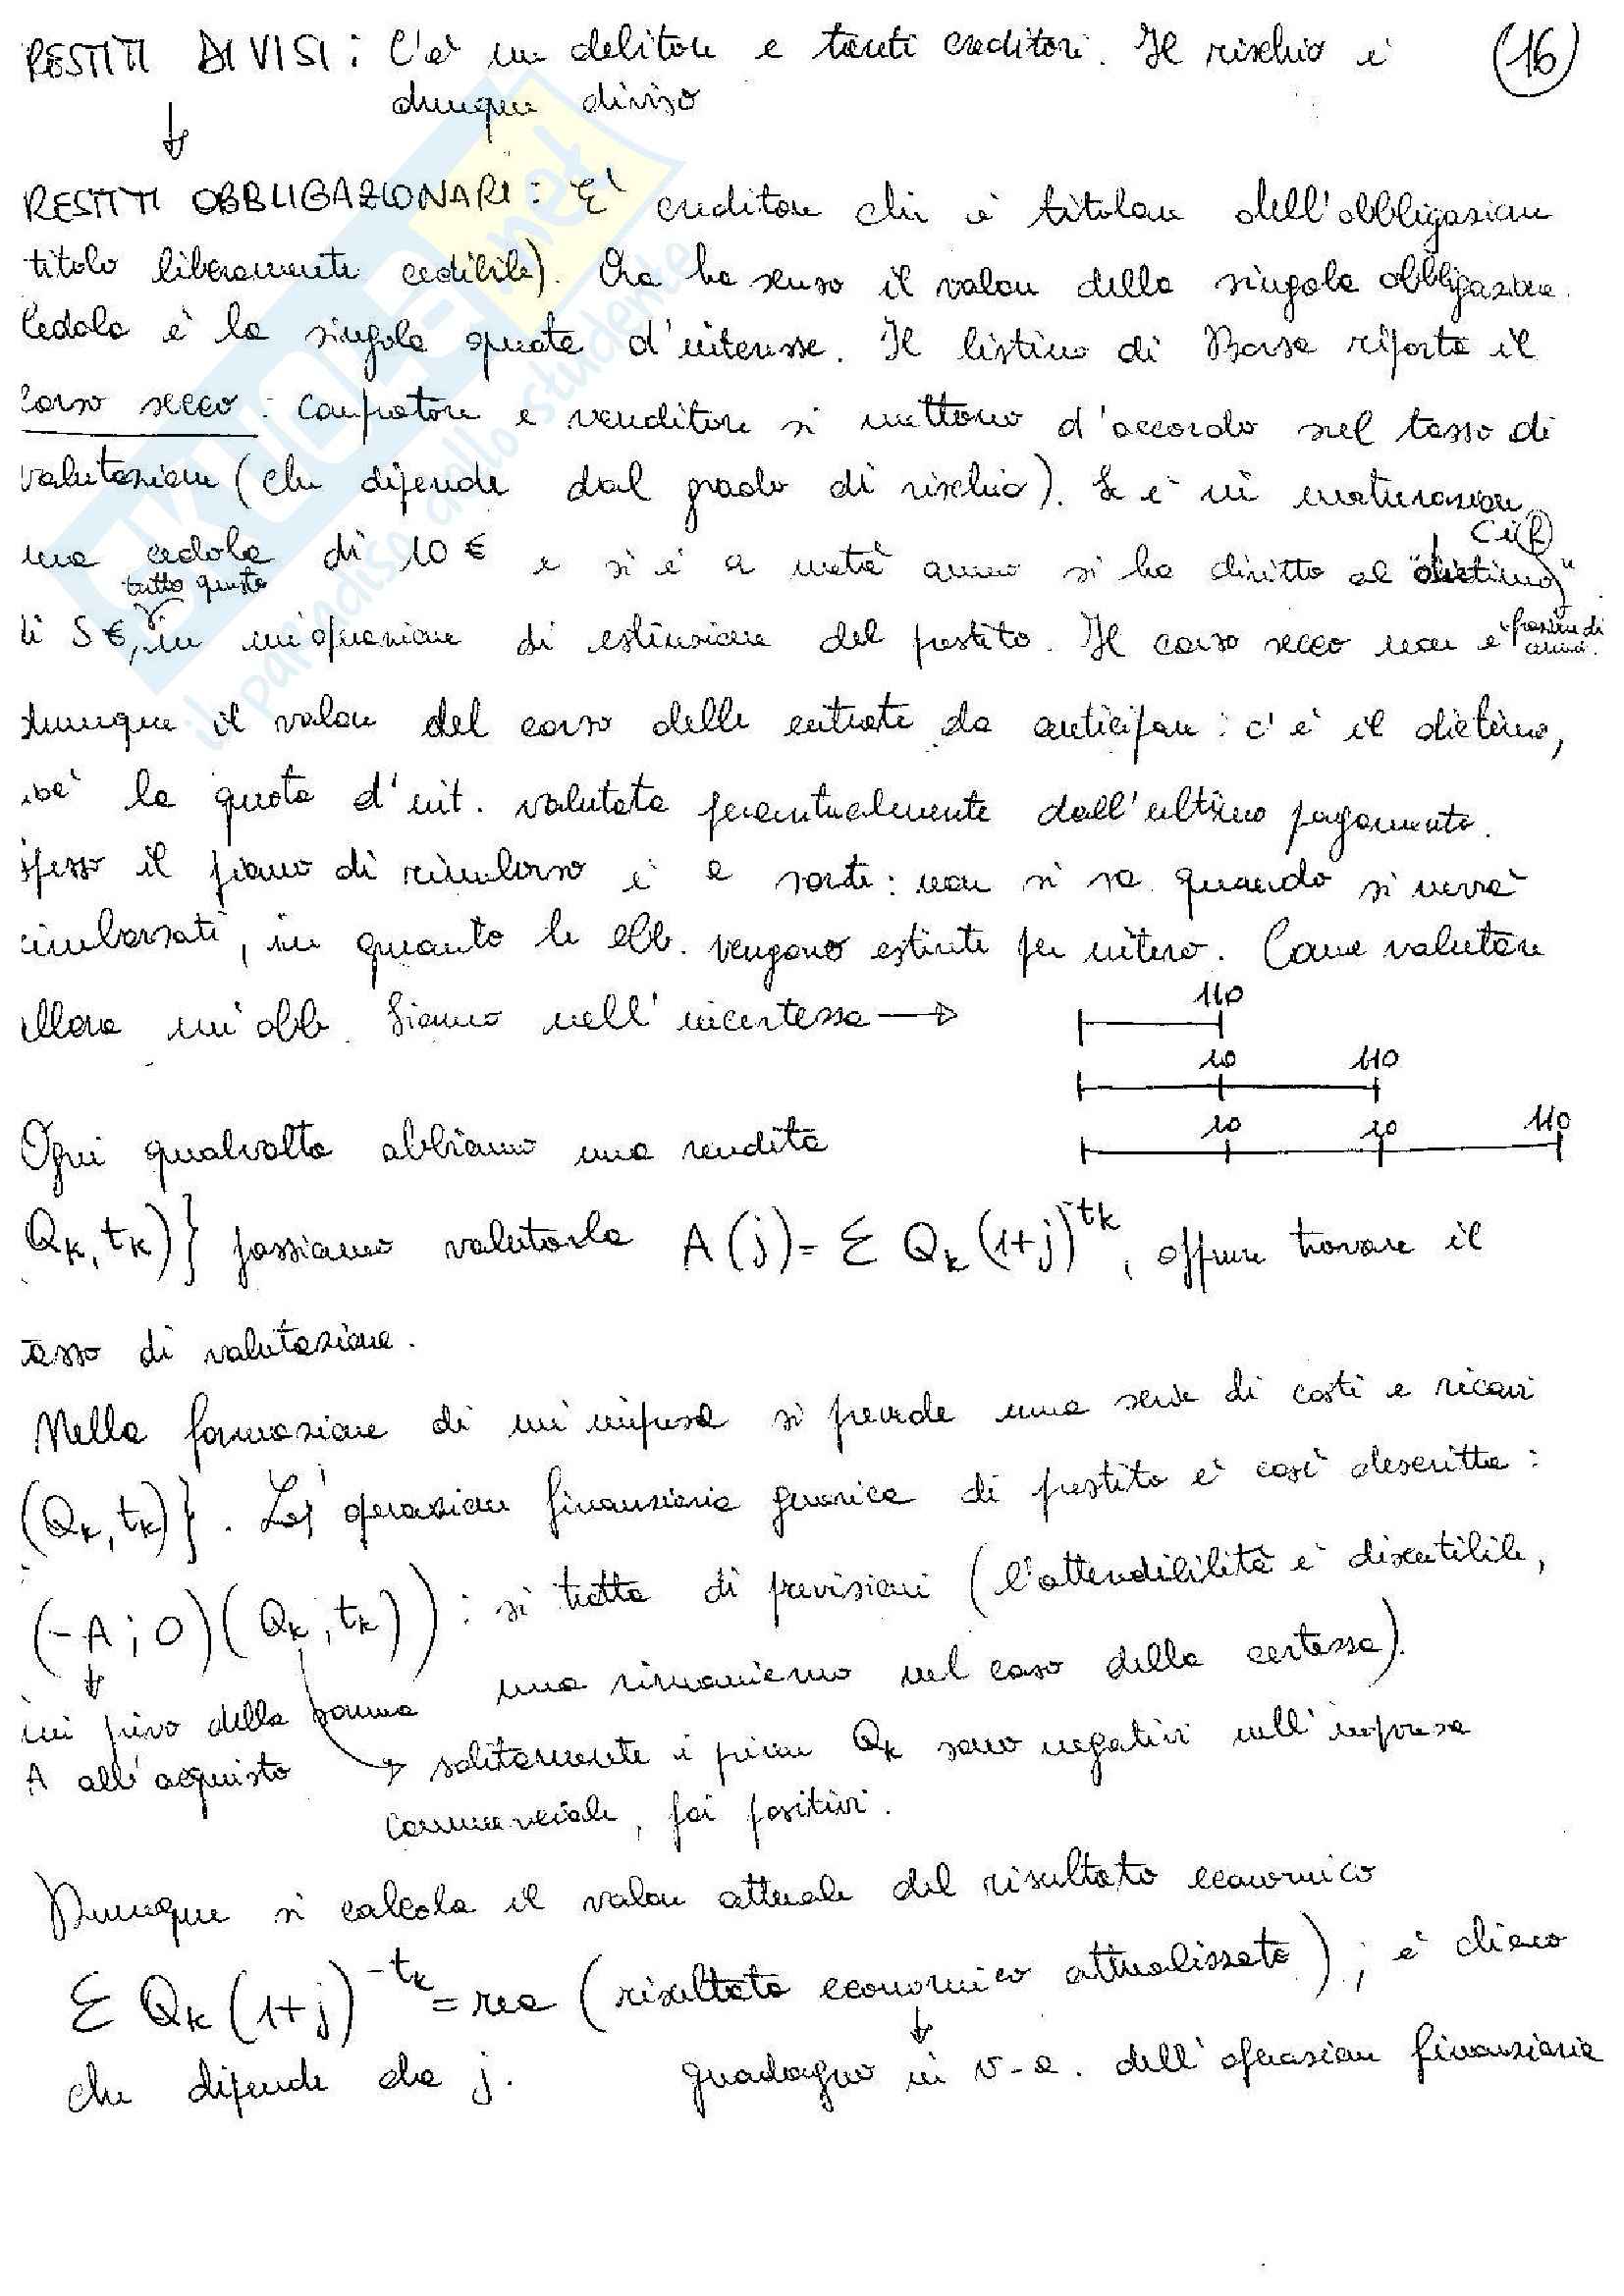 RESTITI DIVISI: C'è un debitore e tanti creditori. Il rischio è (16)
dunque diviso
RESTITI OBBLIGAZIONARI: E' creditore chi è titolare dell'obbligazione
titolo liberamente cedibile). Ora ha senso il valore della singola obbligazione.
Cedola è la singola quota d'interesse. Il listino di Borsa riporta il
corso secco: compratore e venditore si mettono d'accordo sul tasso di
valutazione (che dipende dal grado di rischio). Se è in maturazione
una cedola di 10 € e si è a metà anno si ha diritto al "dietimo"
tutto questo
di 5€, in un'operazione di estinzione del prestito. Il corso secco non è
dunque il valore del corso delle entrate da anticipare: c'è il dietimo,
cioè la quota d'int. valutata percentualmente dall'ultimo pagamento.
spesso il piano di rimborso è a sorte: non si sa quando si verrà
rimborsati, in quanto le obb. vengono estinte per intero. Come valutare
allora un'obb. Siamo nell'incertezza →
110
10 110
10 10 110
Ogni qualvolta abbiamo una rendita
Qk, tk)} possiamo valutarla A(j)= Σ Qk (1+j)^tk, oppure trovare il
tasso di valutazione.
Nella formazione di un'impresa si prevede una serie di costi e ricavi
(Qk, tk)}. L'operazione finanziaria generica di prestito è così descritta:
(-A; 0)(Qk; tk)): si tratta di previsioni (l'attendibilità è discutibile,
ma rimaniamo nel caso della certezza).
mi privo della somma
A all'acquisto
solitamente i primi Qk sono negativi nell'impresa
commerciale, poi positivi.
Dunque si calcola il valore attuale del risultato economico
Σ Qk (1+j)^-tk = rea (risultato economico attualizzato); è chiaro
che dipende da j. guadagno in v-a. dell'operazione finanziaria